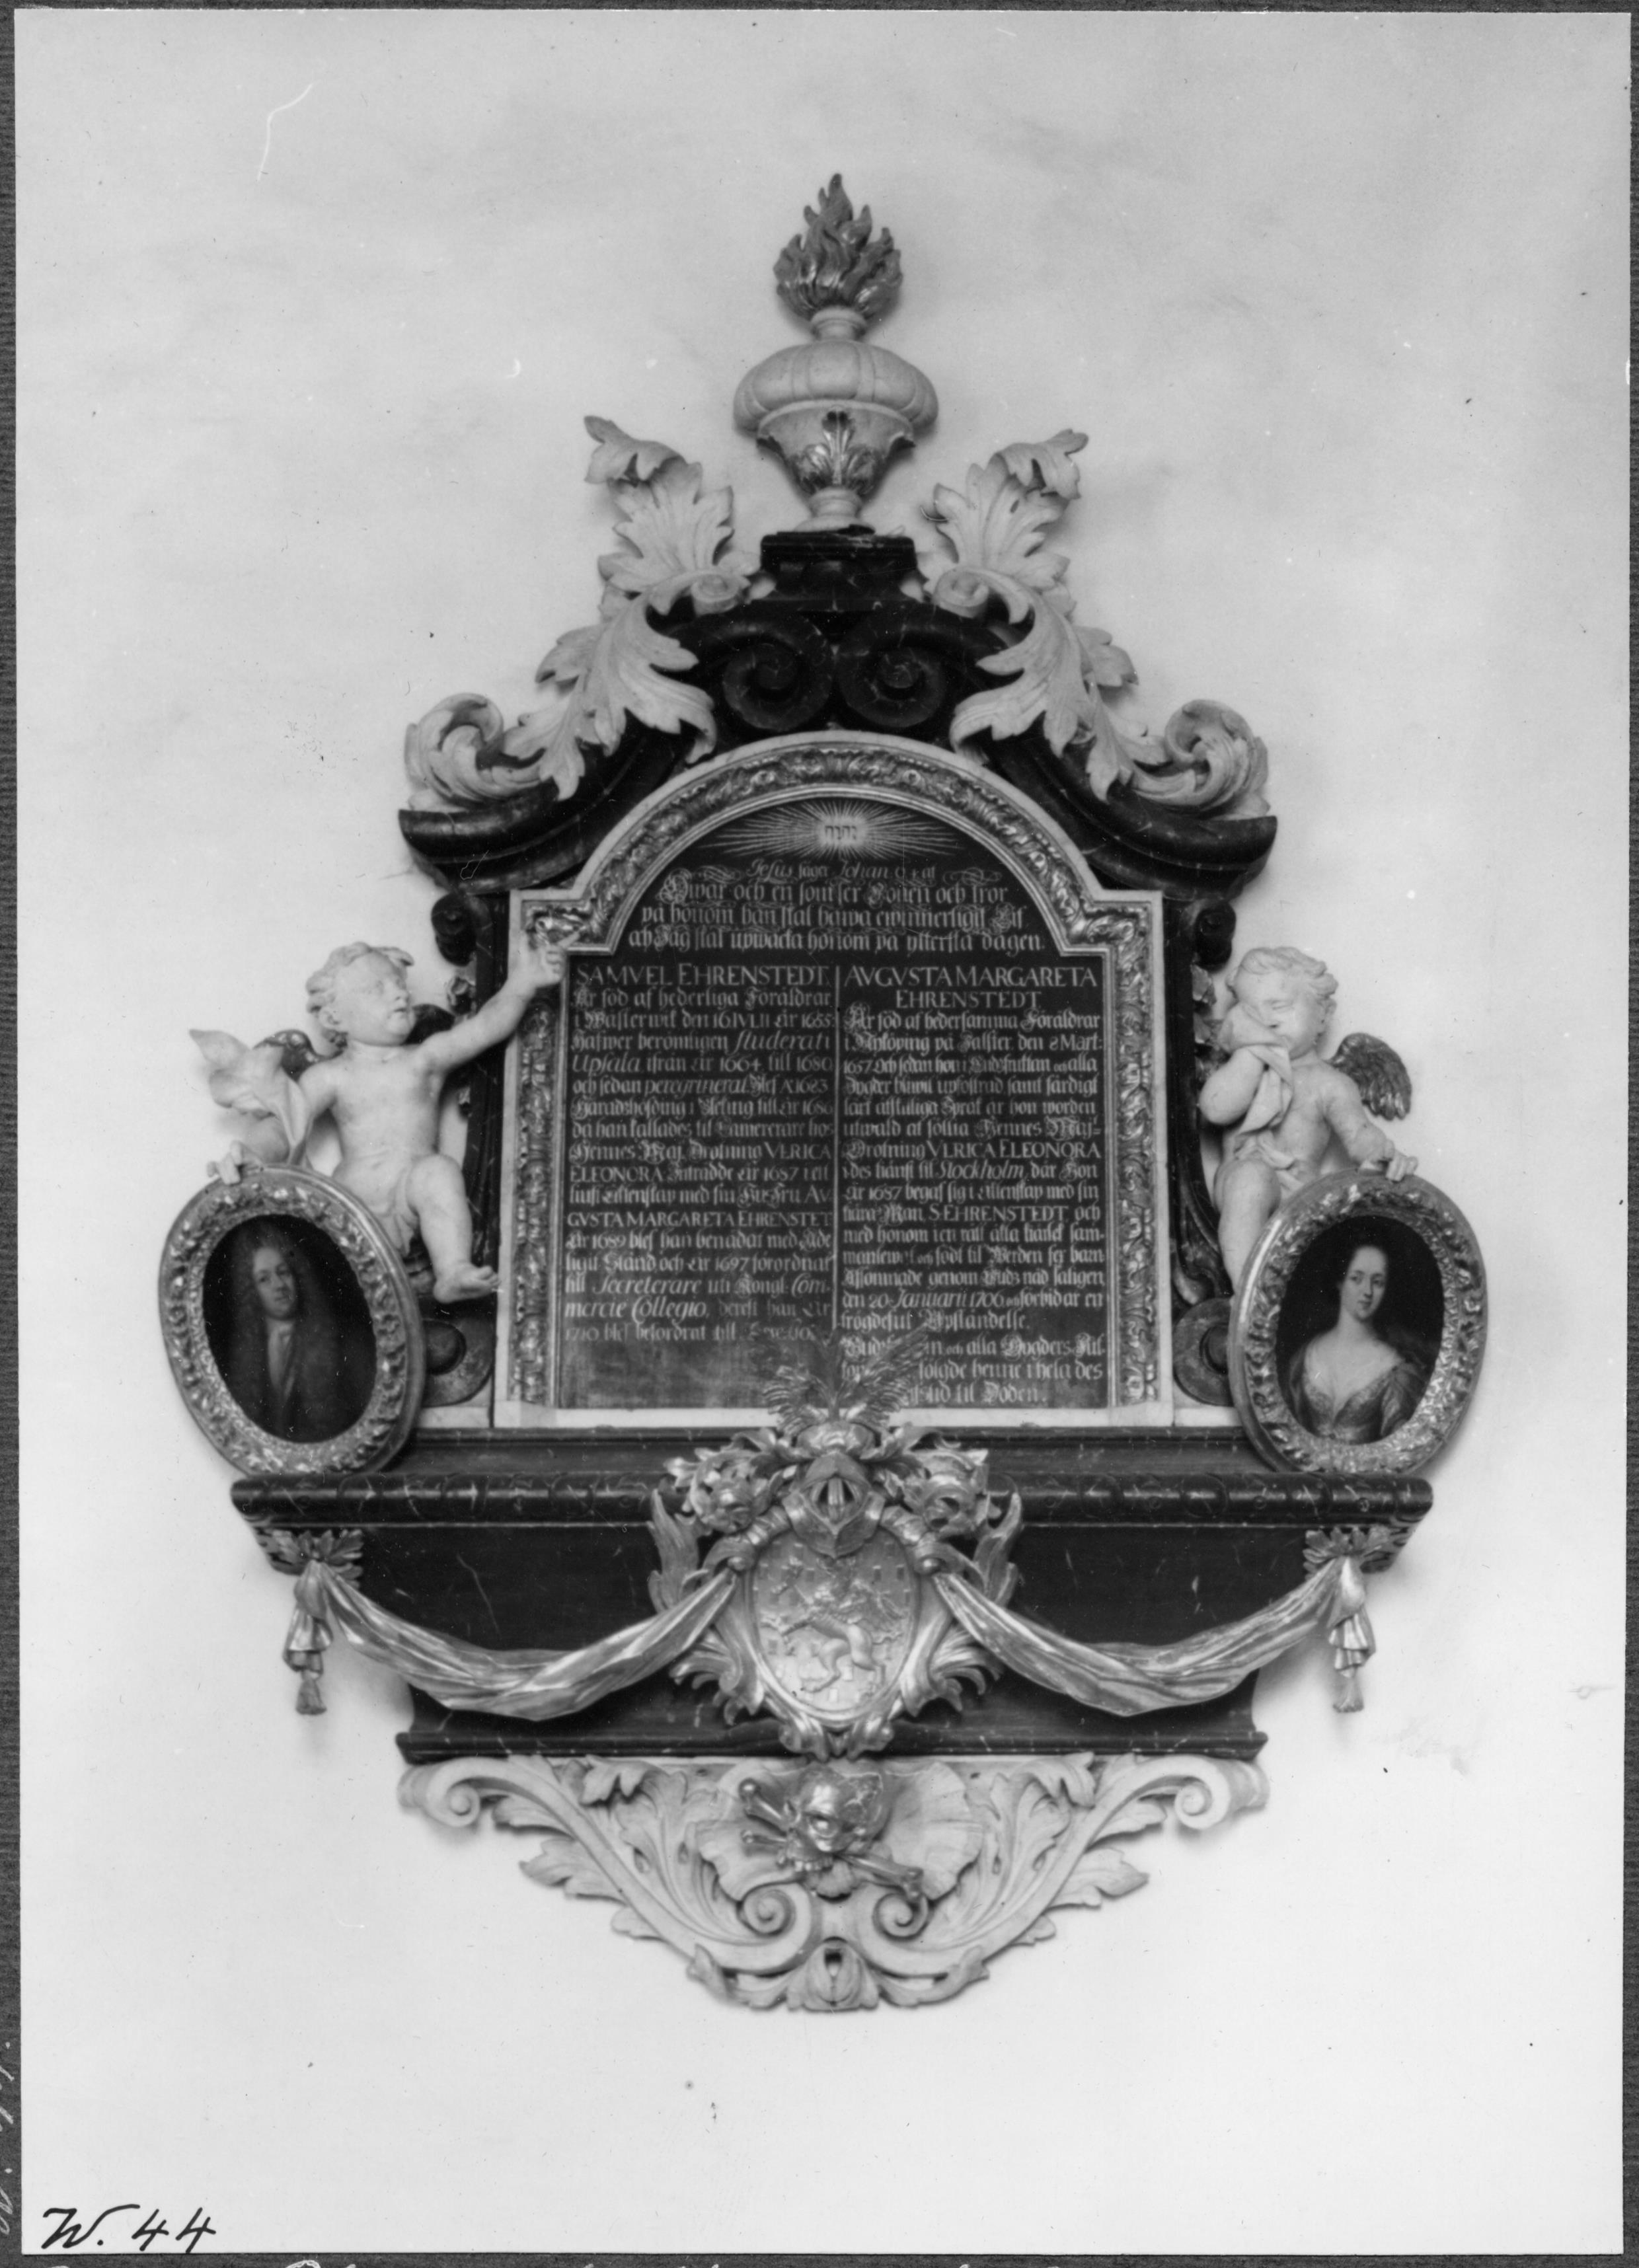 יהוה
Jesus säger Johan 6 v. at
Hwar och en som ser Sonen och tror
på honom han skal hafwa ewinnerligit Lif
och Jag skal upwäcka honom på yttersta dagen.
SAMVEL EHRENSTEDT.
Är föd af hederliga Föräldrar
i Wästerwik den 16 IVLII år 1655
Hafwer berömligen studerat i
Upsala ifrån år 1664 till 1680
och sedan peregrinerat. Blef A 1683
Häradzhöfding i Bleking till år 1686
då han kallades til Camererare hos
Hennes Maj. Drotning VLRICA
ELEONORA Inträdde år 1687 i ett
liuft Ecktenskap med sin K. Fru AV
GVSTA MARGARETA EHRENSTET
År 1689 blef han benådat med Ade
ligit Stånd och år 1697 förordnat
till Secreterare uti Kongl. Com
mercie Collegio, derest han År
1710 blef befordrat till
AVGVSTA MARGARETA
EHRENSTEDT
Är föd af hedersamma Föräldrar
i Nyköping på Falster den 2 Mart:
1657 Och sedan hon i Gudzfruktan och alla
Dygder blifwit upfostrad samt färdigt
lärt åtskilliga Språk är hon worden
utwald at föllia Hennes Maj:
Drotning VLRICA ELEONORA
i des hänst til Stockholm, där Hon
År 1687 begaf sig i Ektenskap med sin
kiära Man S. EHRENSTEDT, och
med honom i en rätt äkta kiärlek sam-
manlewat och födt til Werden sex barn
Afsomnade genom Gudz nåd saligen
den 20 Januarii 1706 och förbidar en
frögdefull Upståndelse.
och alla Dygders
fölgde henne i hela des
tid til Döden.
W. 44